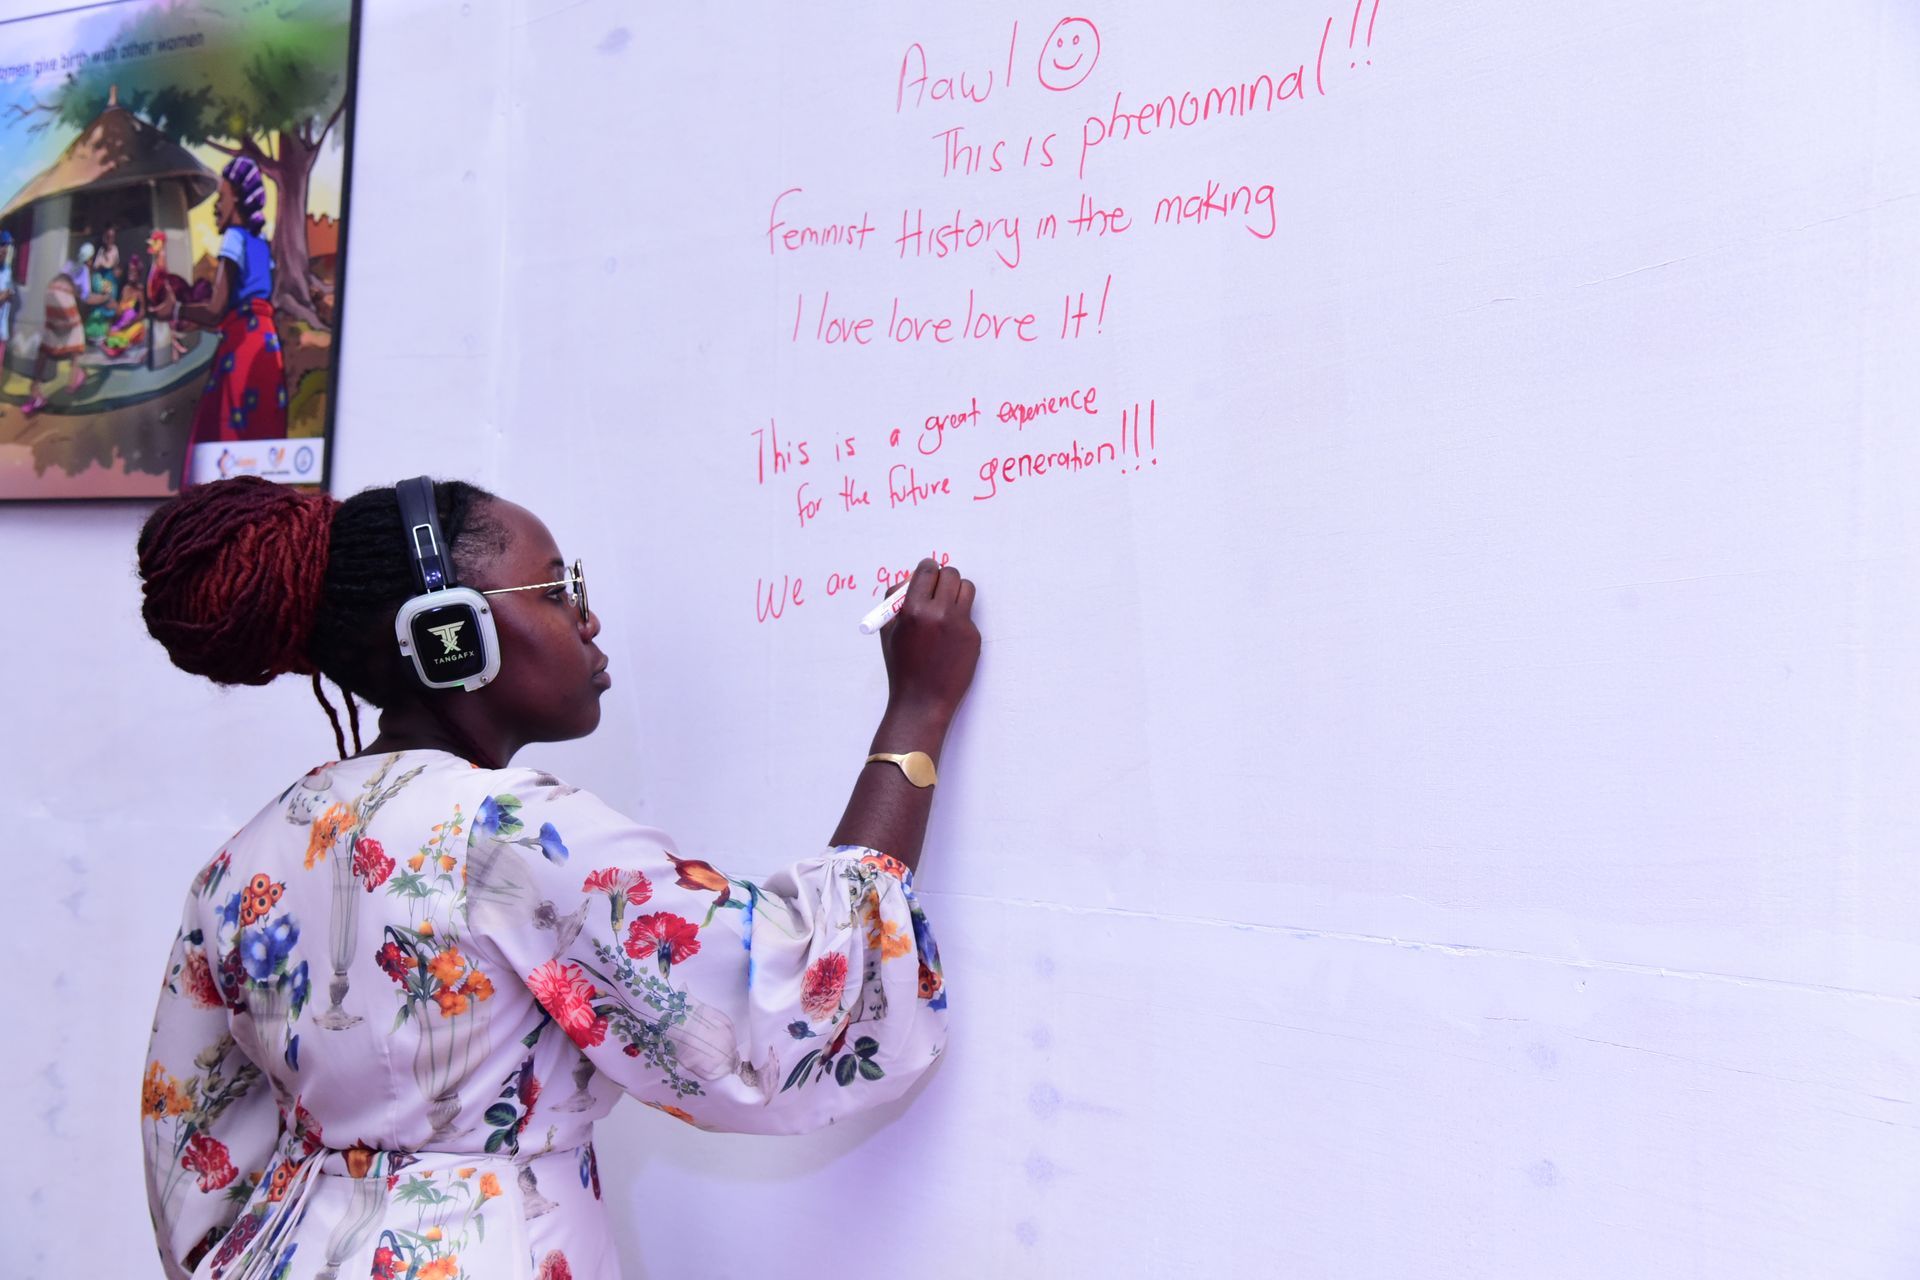 women give birth with other women
Aawl
This is phenominal!!
Feminist History in the making
I love love love It!
This is a great experience
for the future generation!!!
We are
TANGAFX